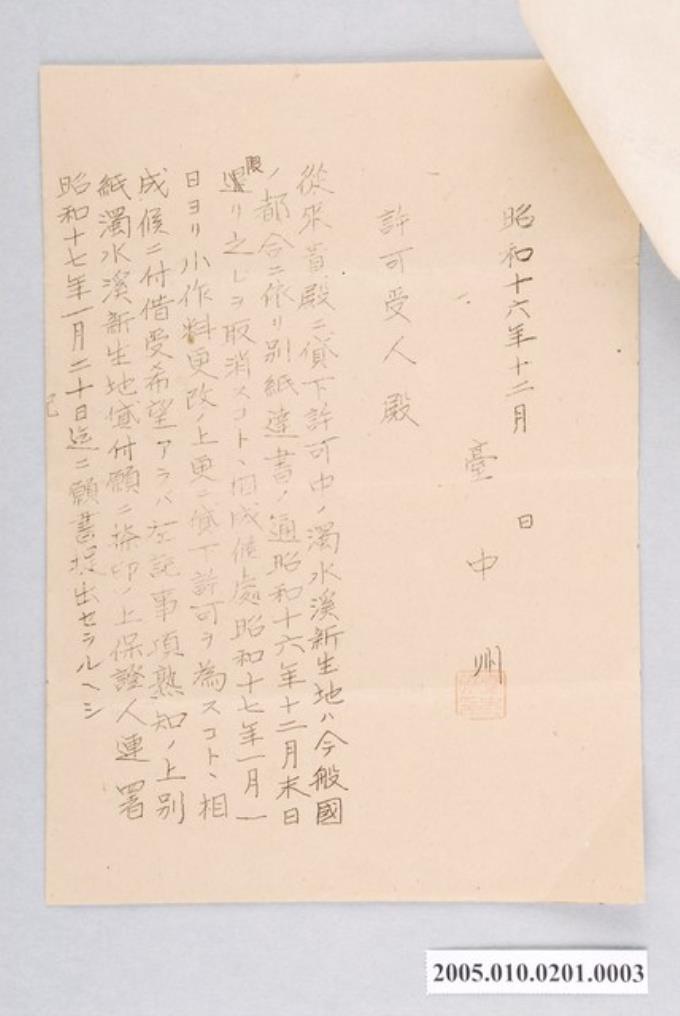 昭和十六年十二月　日
臺中州
許可受人殿
從來貴殿ニ貸下許可中ノ濁水溪新生地ハ今般國
ノ都合ニ依リ別紙達書ノ通昭和十六年十二月末日
限リ之レヲ取消スコトヽ相成候處昭和十七年一月一
日ヨリ小作料更改ノ上更ニ貸下許可ヲ為スコトヽ相
成候ニ付借受希望アラバ左記事項熟知ノ上別
紙濁水溪新生地貸付願ニ捺印ノ上保證人連署
昭和十七年一月二十日迄ニ願書提出セラルヘシ
記
2005.010.0201.0003